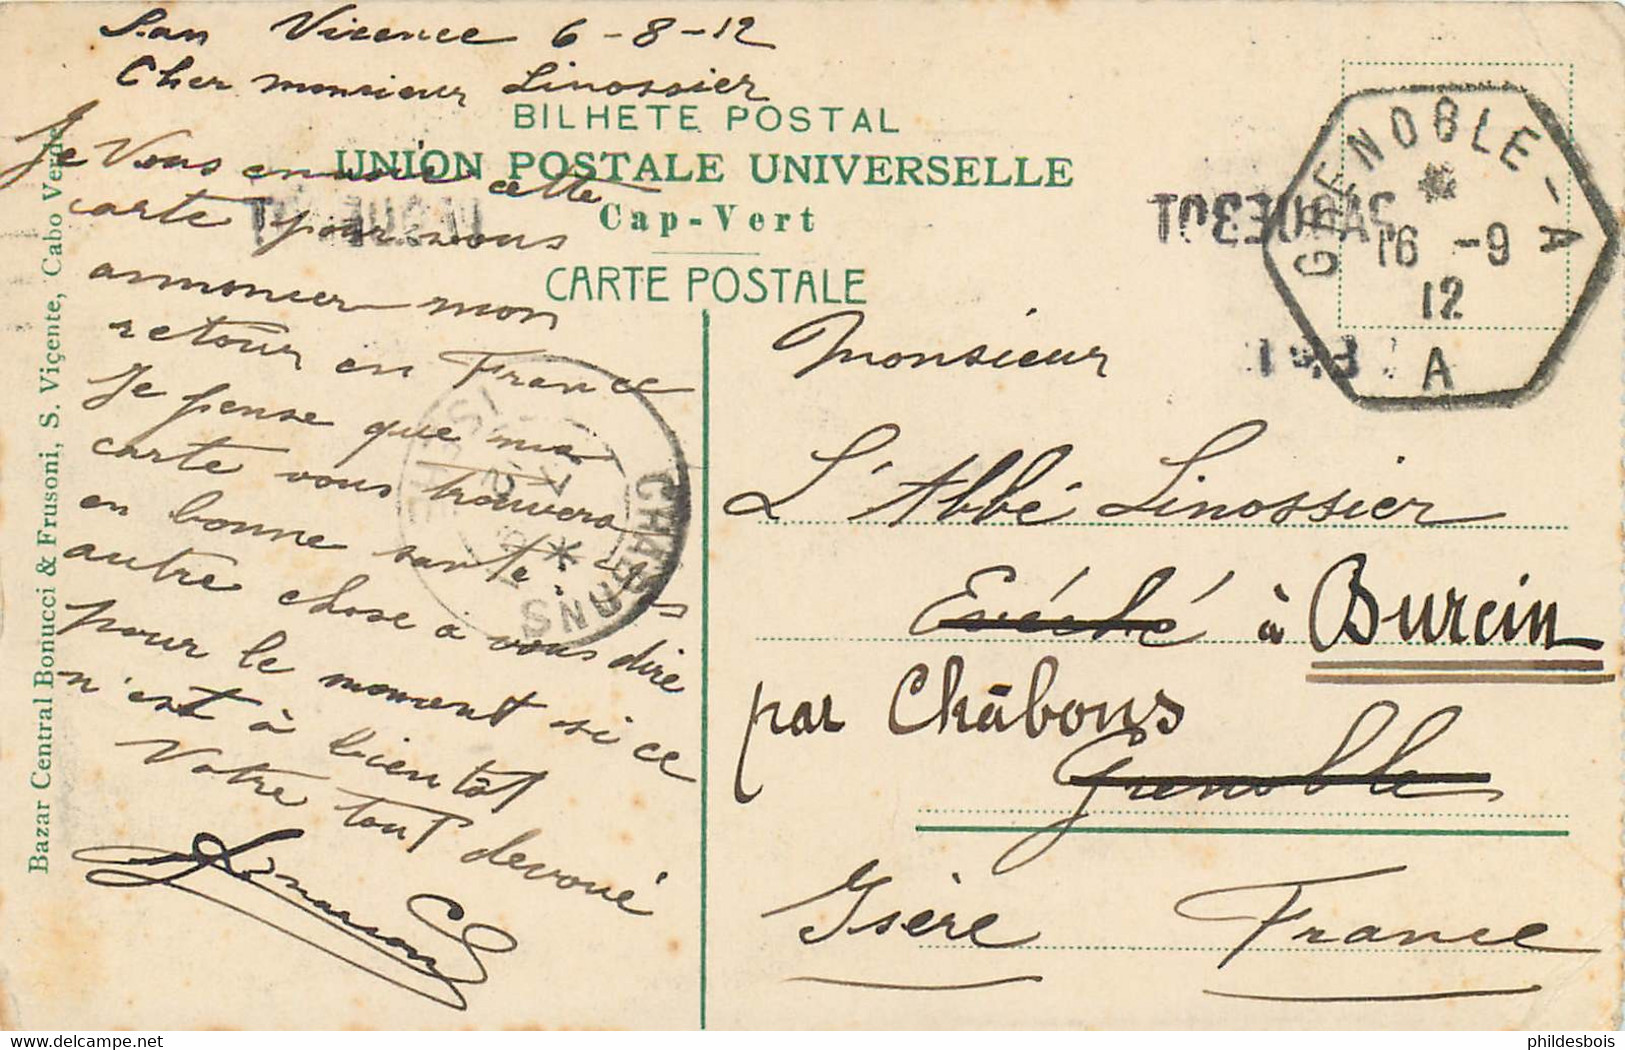 San Vicence 6-8-12
Cher monsieur Linossier
BILHETE POSTAL
UNION POSTALE UNIVERSELLE
Cap-Vert
CARTE POSTALE
Je Vous envoie cette
carte pour vous
annoncer mon
retour en France
Je pense que ma
carte vous trouvera
en bonne santé. Pas
autre chose à vous dire
pour le moment si ce
n'est à bientôt
Votre tout dévoué
Bazar Central Bonucci & Frusoni, S. Viçente, Cabo Verde
GRENOBLE-A
16 -9
12
A
PAQUEBOT
PAQUEBOT
CHABONS
ISERE
Monsieur
L'Abbé Linossier
Evéché à Burcin
par Châbons
Grenoble
Isère France
phildesbois